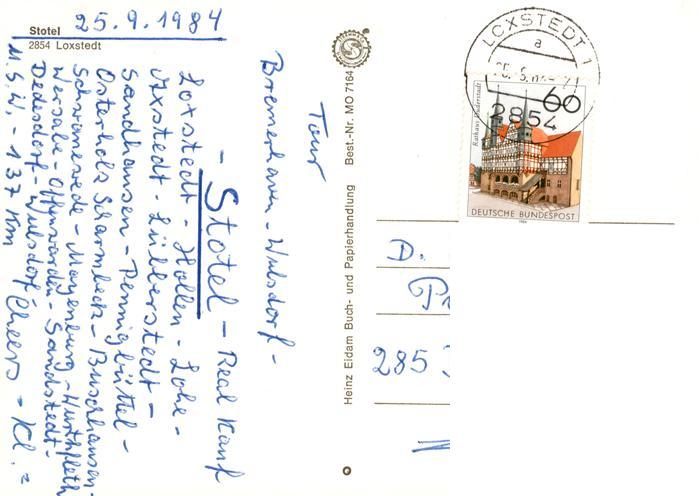 Stotel 25.9.1984
2854 Loxstedt
Tour
Bremerhaven - Wulsdorf -
- Stotel - Real Kauf
Loxstedt - Hollen - Lohe -
Axstedt - Lübberstedt -
Sandhausen - Pennigbüttel -
Osterholz Scharmbeck - Buschhausen -
Schwanewede - Meyenburg - Wurthfleth
Wersabe - Offenwarden - Sandstedt -
Dedesdorf - Wulsdorf
u.s.w. - 137 Km Cheers - Kl.
Heinz Eidam Buch- und Papierhandlung Best.-Nr. MO 7164
LOXSTEDT 1
a
2854
60
Rathaus Duderstadt
DEUTSCHE BUNDESPOST
D.
285